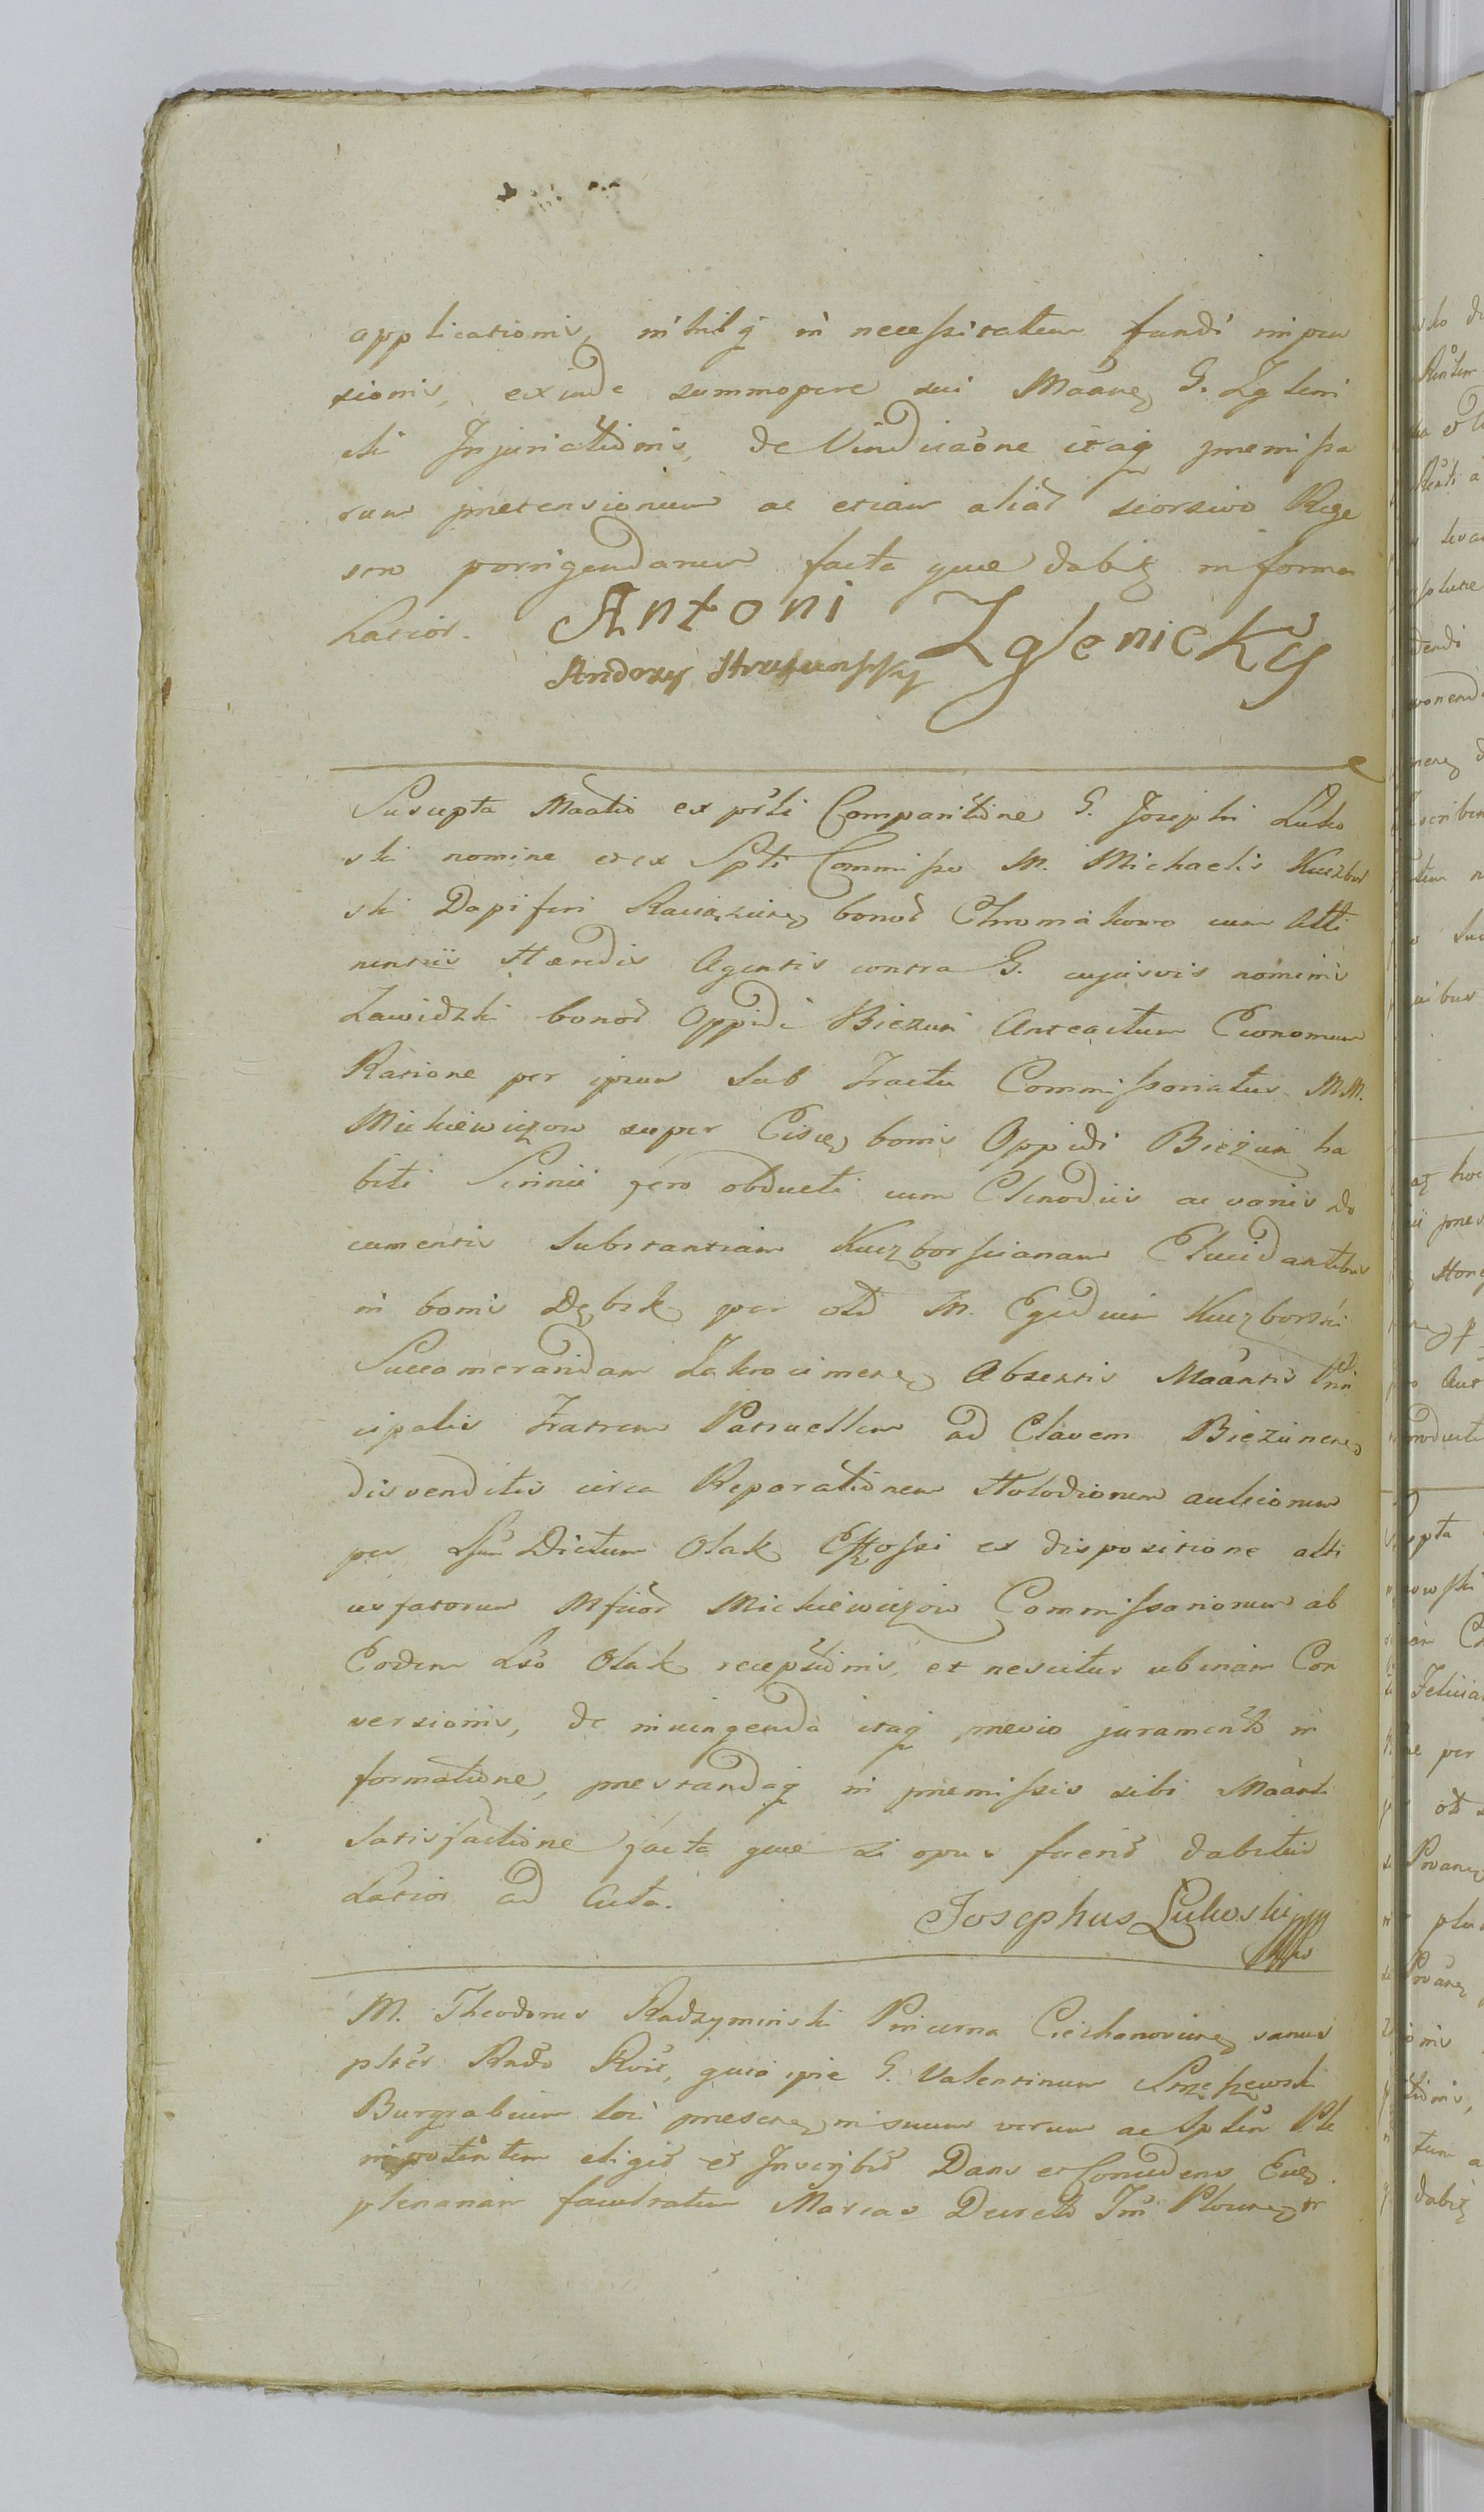 applicationis, nihilq in necessitatem fundi impen
sionis, exinde summopere sui Maane G. Zgleni
cki Injuriationis, de Vindicaone itaq premissa
rum pretensionum ac etiam aliar seorsivo Rege
stro porrigendarum facta que dabit in forma
Latior. Antoni Zglenicky
Andrzy
Suscepta Maatio ex psti Comparitione G. Josephi Luko
ski nomine et ex Spti Commisso M. Michaelis Kuczbor
ski Dapiferi bonor Chromakowo cum Atti
nentiis Hærdis Agentis contra G. cujusvis nominis
Zawidzki bonor Oppidi Biezun Anteactum Economum
Ratione per ipsum Sub Tractu Commissoriatus MM.
Mickiewiczow super Eisd bonis Oppidi Biezun ha
biti Scrinii fero obducti cum Clenodiis ac variis do
cumentis Substantiam Kuczborscianam Elucidantibus
in bonis Dębsk per olt M. Egidium Kuczborski
Succamerandam Zakrocimen Absentis Maantis Prin
cipalis Fratrem Patruellem ad Clavem Biezunen
disvenditis circa Reparationem Holodiorum aulicorum
per Lsum Dictum Olak Effossi ex dispositione alti
usfatorum Mfcior Mickiewiczow Commissariorum ab
Eodem Lso Olak receptionis, et nescitur ubinam Con
versionis, de iniungenda itaq previo juramento in
formatione, prestandaq in premissis sibi Maanti
Satisfactione facta que si opus fuerit dabitur
Latior ad Acta.
Josephus Lukoski mpp
M. Theodorus Radzyminski Pincerna Ciechanovien sanus
pltes Rndo Rvit, quia ipse G. Valentinum
Burgrabium loci presen in suum verum ac Spilem Ple
nipotentem eligit et Inscribit Dans et Concedens Eid
plenariam facultatem Marcas Decreto Trii Plocen